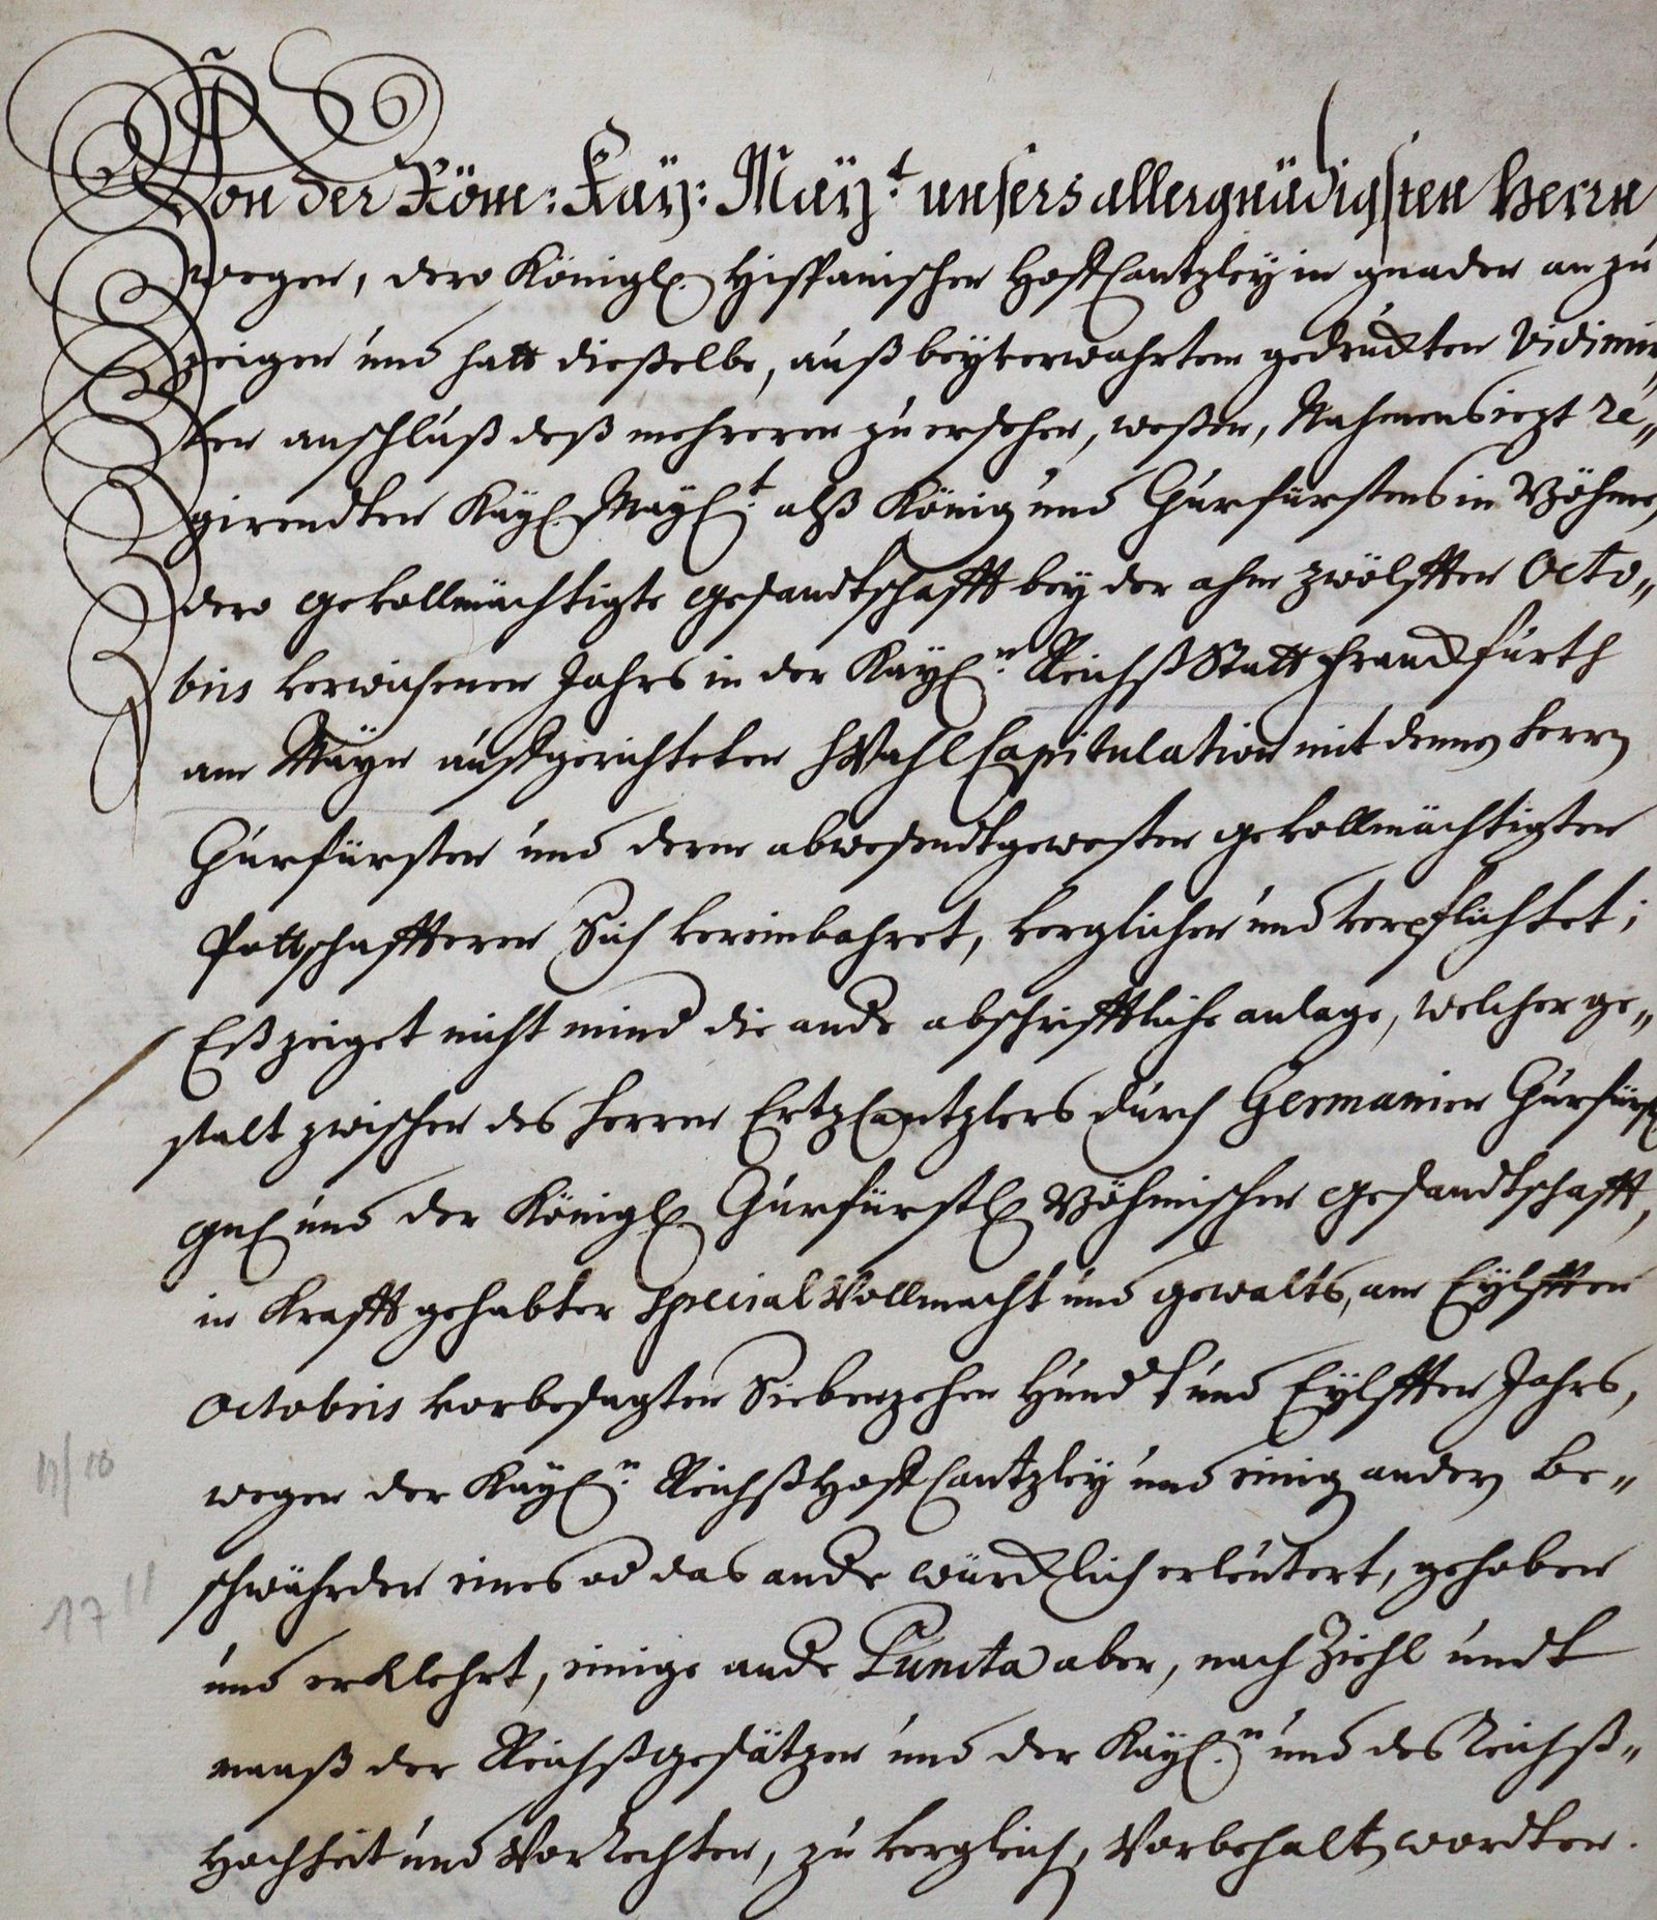 Von der Röm: Kaÿ: Maÿ:t unsers allergnädigsten Herrn
wegen, dero Königl. Hispanischen HoffCantzley in gnaden an zu
zeigen und hatt dieselbe, auß beyverwahrtem gedruckten Vidimir,,
ten anschluß deß mehreren zu ersehen, weßen, Nahmens iezt re,,
girendten Kaÿl. Maÿl:t alß König und Churfürstens in Böhmen,
dero gevollmächtigte gesandtschafft bey der ahm zwölfften Octo,,
bris verwichenen Jahrs in der Kaÿl:n ReichßStatt Franckfurth
am Maÿn auffgerichteten WahlCapitulation mit denen herrn
Churfürsten und deren abwesendtgewesten gevollmächtigten
Pottschafftern Sich vereinbahret, verglichen und verpflichtet;
Eß zeiget nicht mind die ande abschrifftliche anlage, welcher ge,,
stalt zwischen des herren ErtzCantzlers durch Germanien Churfürstl
gnl und der Königl Churfürstl Böhmischen gesandtschafft,
in krafft gehabter special Vollmacht und gewalts, am Eÿlfften
Octobris vorbesagten Siebenzehen Hundt und Eÿlfften Jahrs,
wegen der Kaÿl:n ReichßHoffCantzley und einig andern Be,,
schwährden eines od das ande würcklich erleutert, gehoben
und erklehrt, einige ande Puncta aber, nach Ziehl undt
maaß der Reichßgesätzen und der Kaÿl:n und des Reichß,,
Hochheit und Vorrechten, zu vergleich, Vorbehalt wordten.
11/10
17 11